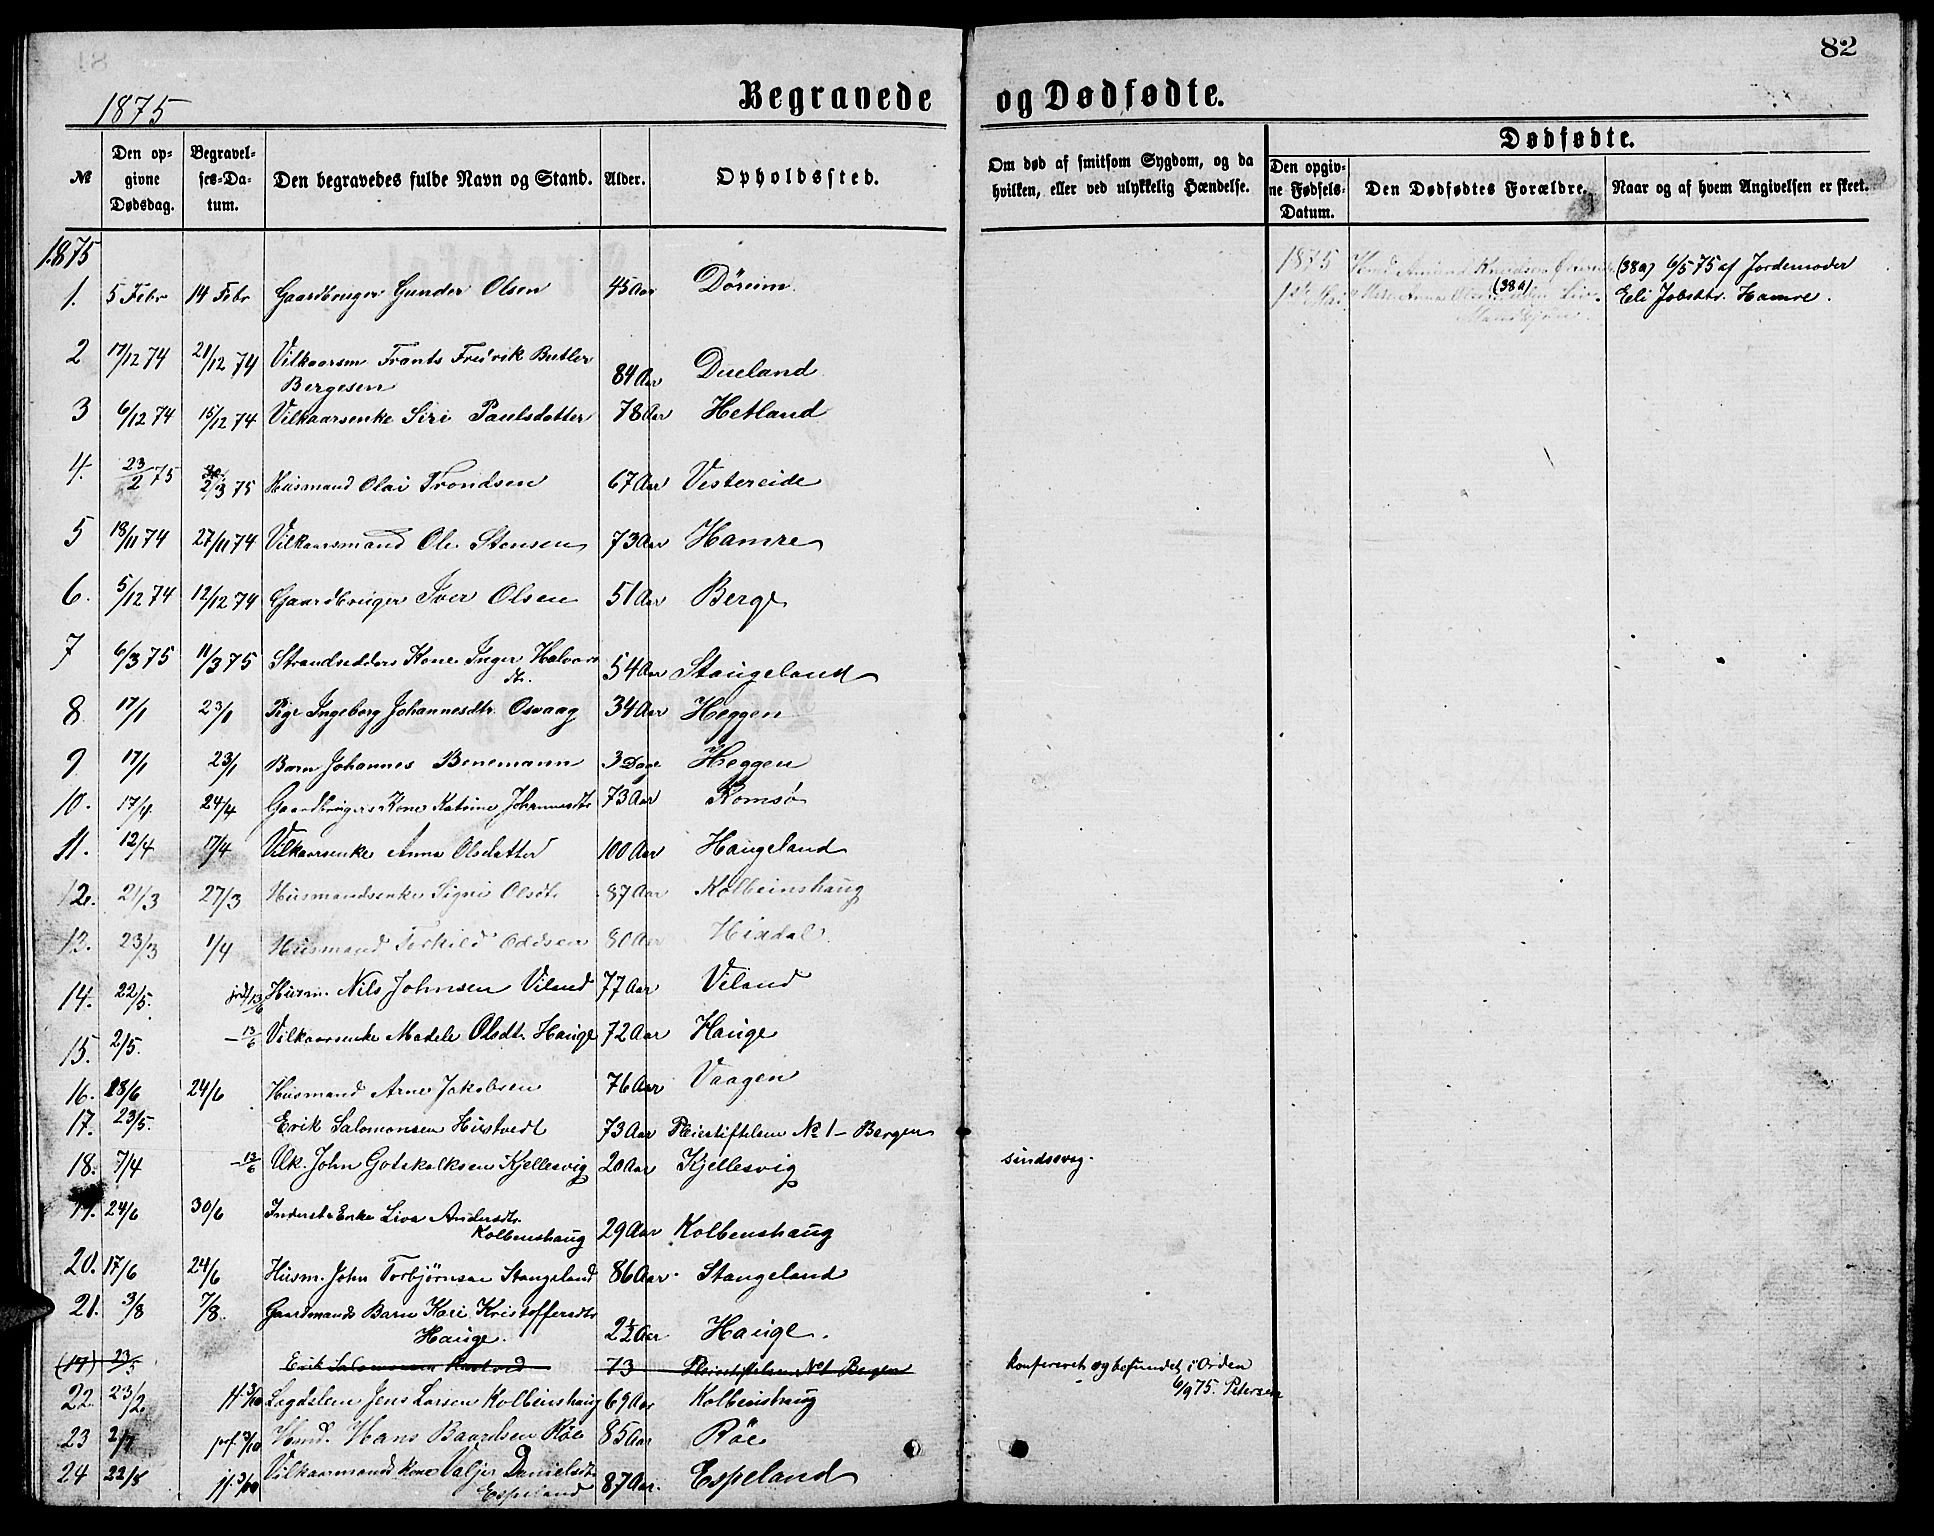 82
1875
Begravede og Dødfødte.
№
Den opgivne Dødsdag.
Begravelses-Datum.
Den begravedes fulde Navn og Stand.
Alder.
Opholdssted.
Om død af smitsom Sygdom, og da hvilken, eller ved ulykkelig Hændelse.
Dødfødte.
Den opgivne Fødsels-Datum.
Den Dødfødtes Forældre.
Naar og af hvem Angivelsen er skeet.
1875
1. 5 Febr 14 Febr Gaardbruger Gunder Olsen 45 Aar Døreim
1875 (38a) 6/5 75 af Jordemoder
(38a) Eli Jobsdtr. Hamre.
2 17/12 74 21/12 74 Vilkaarsm Frants Fredrik Butler
Bergesen 84 Aar Dueland
3 6/12 74 15/12 74 Vilkaarsenke Siri Paulsdatter 78 Aar Hetland
4. 23/2 75 2/3 75 Husmand Olai Trondsen 67 Aar Vestereide
5 18/11 74 27/11 74 Vilkaarsmand Ole Stensen 73 Aar Hamre
6. 5/12 74 12/12 74 Gaardbruger Iver Olsen 51 Aar Berge
7 6/3 75 11/3 75 Strandsidders Kone Inger Halvors
dtr. 54 Aar Stangeland
8 17/1 23/1 Pige Ingeborg Johannesdtr. Osvaag 34 Aar Heggen
9 17/1 23/1 Barn Johannes Benemann 3 Dage Heggen
10. 17/4 24/4 Gaardbrugers Kone Katrine Johannesdtr 73 Aar Romsø
11. 12/4 17/4 Vilkaarsenke Anna Olsdatter 100 Aar Haugeland
12. 21/3 27/3 Husmandsenke Signi Olsdtr 87 Aar Kolbeinshaug
12. 23/3 1/4 Husmand Torkild Oddsen 80 Aar
14. 22/5. jrdf 13/6 Husm. Nils Johnsen Viland 77 Aar Viland
15. 2/5. – 13/6 Vilkaarsenke Madele Olsdtr. Hauge 72 Aar Hauge
16. 18/6 24/6 Husmand Arne Jakobsen 76 Aar Vaagen
17. 23/5. Erik Salomonsen Hustvedt 73 Aar Pleiestiftelsen № 1 – Bergen
18. 7/4 – 13/6 Uk. John Gotskalksen Kjellesvig 20 Aar Kjellesvig sindssvag.
19. 24/6 30/6 Inderst Enke Liva Andersdtr.
Kolbenshaug 29 Aar Kolbenshaug
20. 17/6 24/6 Husm. John Torbjørnsen Stangeland 86 Aar. Stangeland
21. 3/8 7/8. Gaardmands Barn Kari Kristoffersdtr
Hauge. 2½ Aar Hauge.
(17) 23/5 Erik Salomonsen Hustved 73 Pleiestiftelsen № 1 Bergen konfereret og befundet i Orden
6/9 75. Petersen
22. 23/2 jf. 3/10 Lægdslem Jens Larsen Kolbeinshaug 69 Aar Kolbeinshaug
23 2/7 jrf. 3/10 Hmd. Hans Baardsen Røe 85 Aar Røe
24 22/8 jf. 3/10 Vilkaarmands Kone Valjer Danielsdtr.
Espeland 87 Aar. Espeland